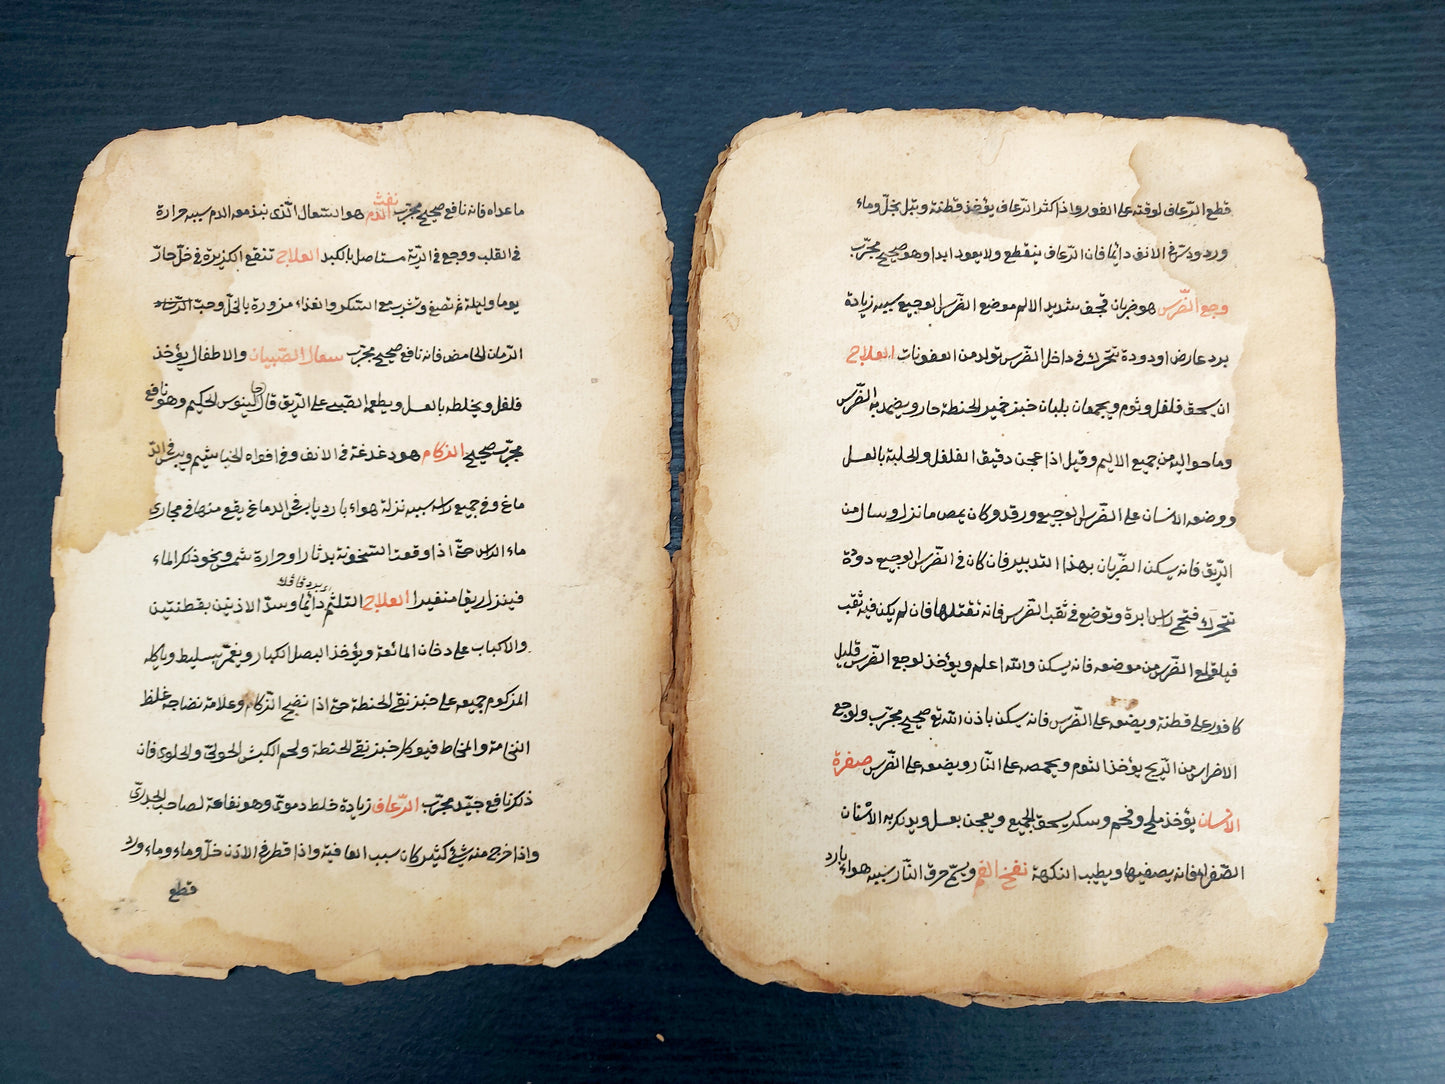 ما عداه فانه نافع صحيح مجرّب نفث الدم هو السّعال الّذى ينبذ معه الدم سببه حرارة
فى القلب ووجع فى الريّة مستاصل بالكبد العلاج تنقع الكزبرة فى خلّ حارّ
يوما وليلة ثم تصفى وتشرب مع السّكر والغذاء مزورة بالخلّ وحبّ الرّشاد
الرّمان الحامض فانه نافع صحيح مجرّب سعال الصّبيان والاطفال يؤخذ
فلفل ويخلطه بالعسل ويطعمه الصّبى على الرّيق قال جالينوس الحكيم وهو نافع
مجرّب صحيح الزكام هو دغدغة فى الانف وفى افواه الخياشيم ويبس فى الد
ماغ وفى جميع راسه سببه نزلة هواء بارد يابس فى الدماغ يقع منها فى مجارى
ماء الراس حتّى اذا وقعت السّخونة بدثار او حرارة شمس ونحو ذلك الماء
فينزل ريقا منفيرا العلاج التلثم دائما وسدّ الاذنين بقطنتين
والاكباب على دخان المائعة ويؤخذ البصل الكبار ويغمّر بسليط وياكله
المزكوم جميعه على خبز نقى الحنطة حتى اذا نضج الزّكام وعلامة نضاجه غلظ
النخامة والمخاط فيوكل خبز نقى الحنطة ولحم الكبش الحولىّ والحلوى فان
ذلك نافع جيّد مجرّب الرّعاف زيادة خلط دموىّ وهو نفاعة لصاحب الجدرىّ
واذا خرج منه شئ كثير كان سبب العافية واذا قطر فى الاذن خلّ وماء وماء ورد
قطع
قطع الرّعاف لوقته على الفور واذا كثر الرّعاف يؤخذ قطنة وتبّل بخلّ وماء
ورد وتدسّ فى الانف دائما فان الرّعاف ينقطع ولا يعود ابدا وهو صحيح مجرّب
وجع الضّرس هو ضربان قحف شديد الالم موضع الضّرس الوجيع سببه زيادة
برد عارض او دودة تتحرّك فى داخل الضّرس تولد من العفونات العلاج
ان يسحق فلفل وثوم ويجمعان بلباب خبز خمير الحنطة حار ويضمد به الضّرس
وما حواليه من جميع الاليم وقيل اذا عجن دقيق الفلفل والحلبة بالعسل
ووضعه الانسان على الضّرس الوجيع ورقد وكان يمص ما نزل وسال من
الرّيق فانه يسكن الضّربان بهذا التدبير فان كان فى الضّرس الوجيع دودة
تتحرّك فتحمى راس ابرة وتوضع فى ثقب الضّرس فانه تقتلها فان لم يكن فيه ثقب
فيلقلع الضّرس من موضعه فانه يسكن والله اعلم ويؤخذ لوجع الضّرس قليل
كافور على قطنة ويضعه على الضّرس فانه يسكن باذن الله تع صحيح مجرّب ولوجع
الاضراس من الرّيح يؤخذ الثوم ويحمصه على النّار ويضعه على الضّرس صفرة
الاسنان يؤخذ ملح وفحم وسكر يسحق الجميع ويعجن بعسل ويدلك به الاسنان
الصّفراء فانه يصفيها ويطيب النكهة نفخ الفم ويسمّى حرق النّار سببه هواء بارد